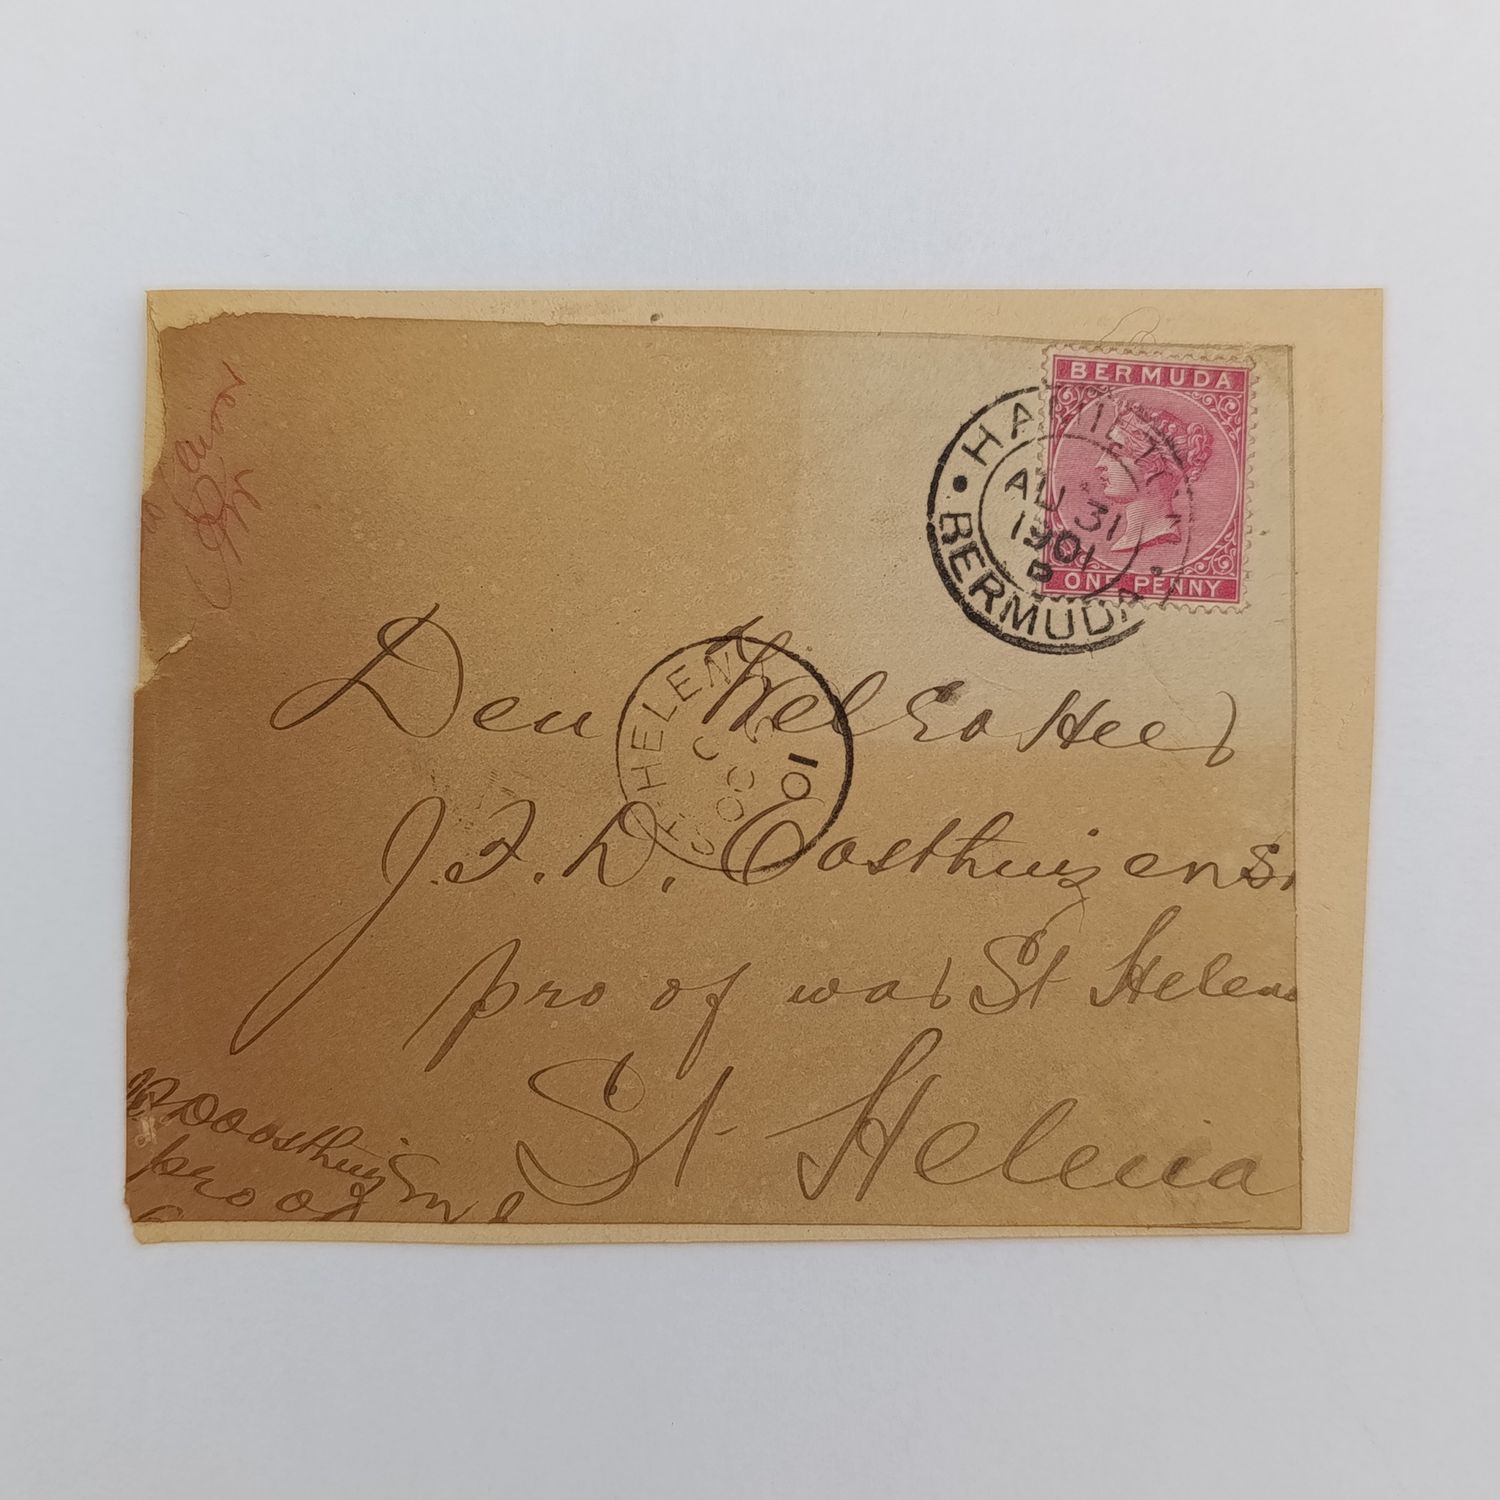 BERMUDA
ONE PENNY
HAMILTON
BERMUDA
AU 31
1901
B
ST HELENA
C
OC
01
Den Wel Ed Heer
J. F. D. Oosthuizen Sr
pro of war St Helena
St Helena
Oosthuizen
pro of